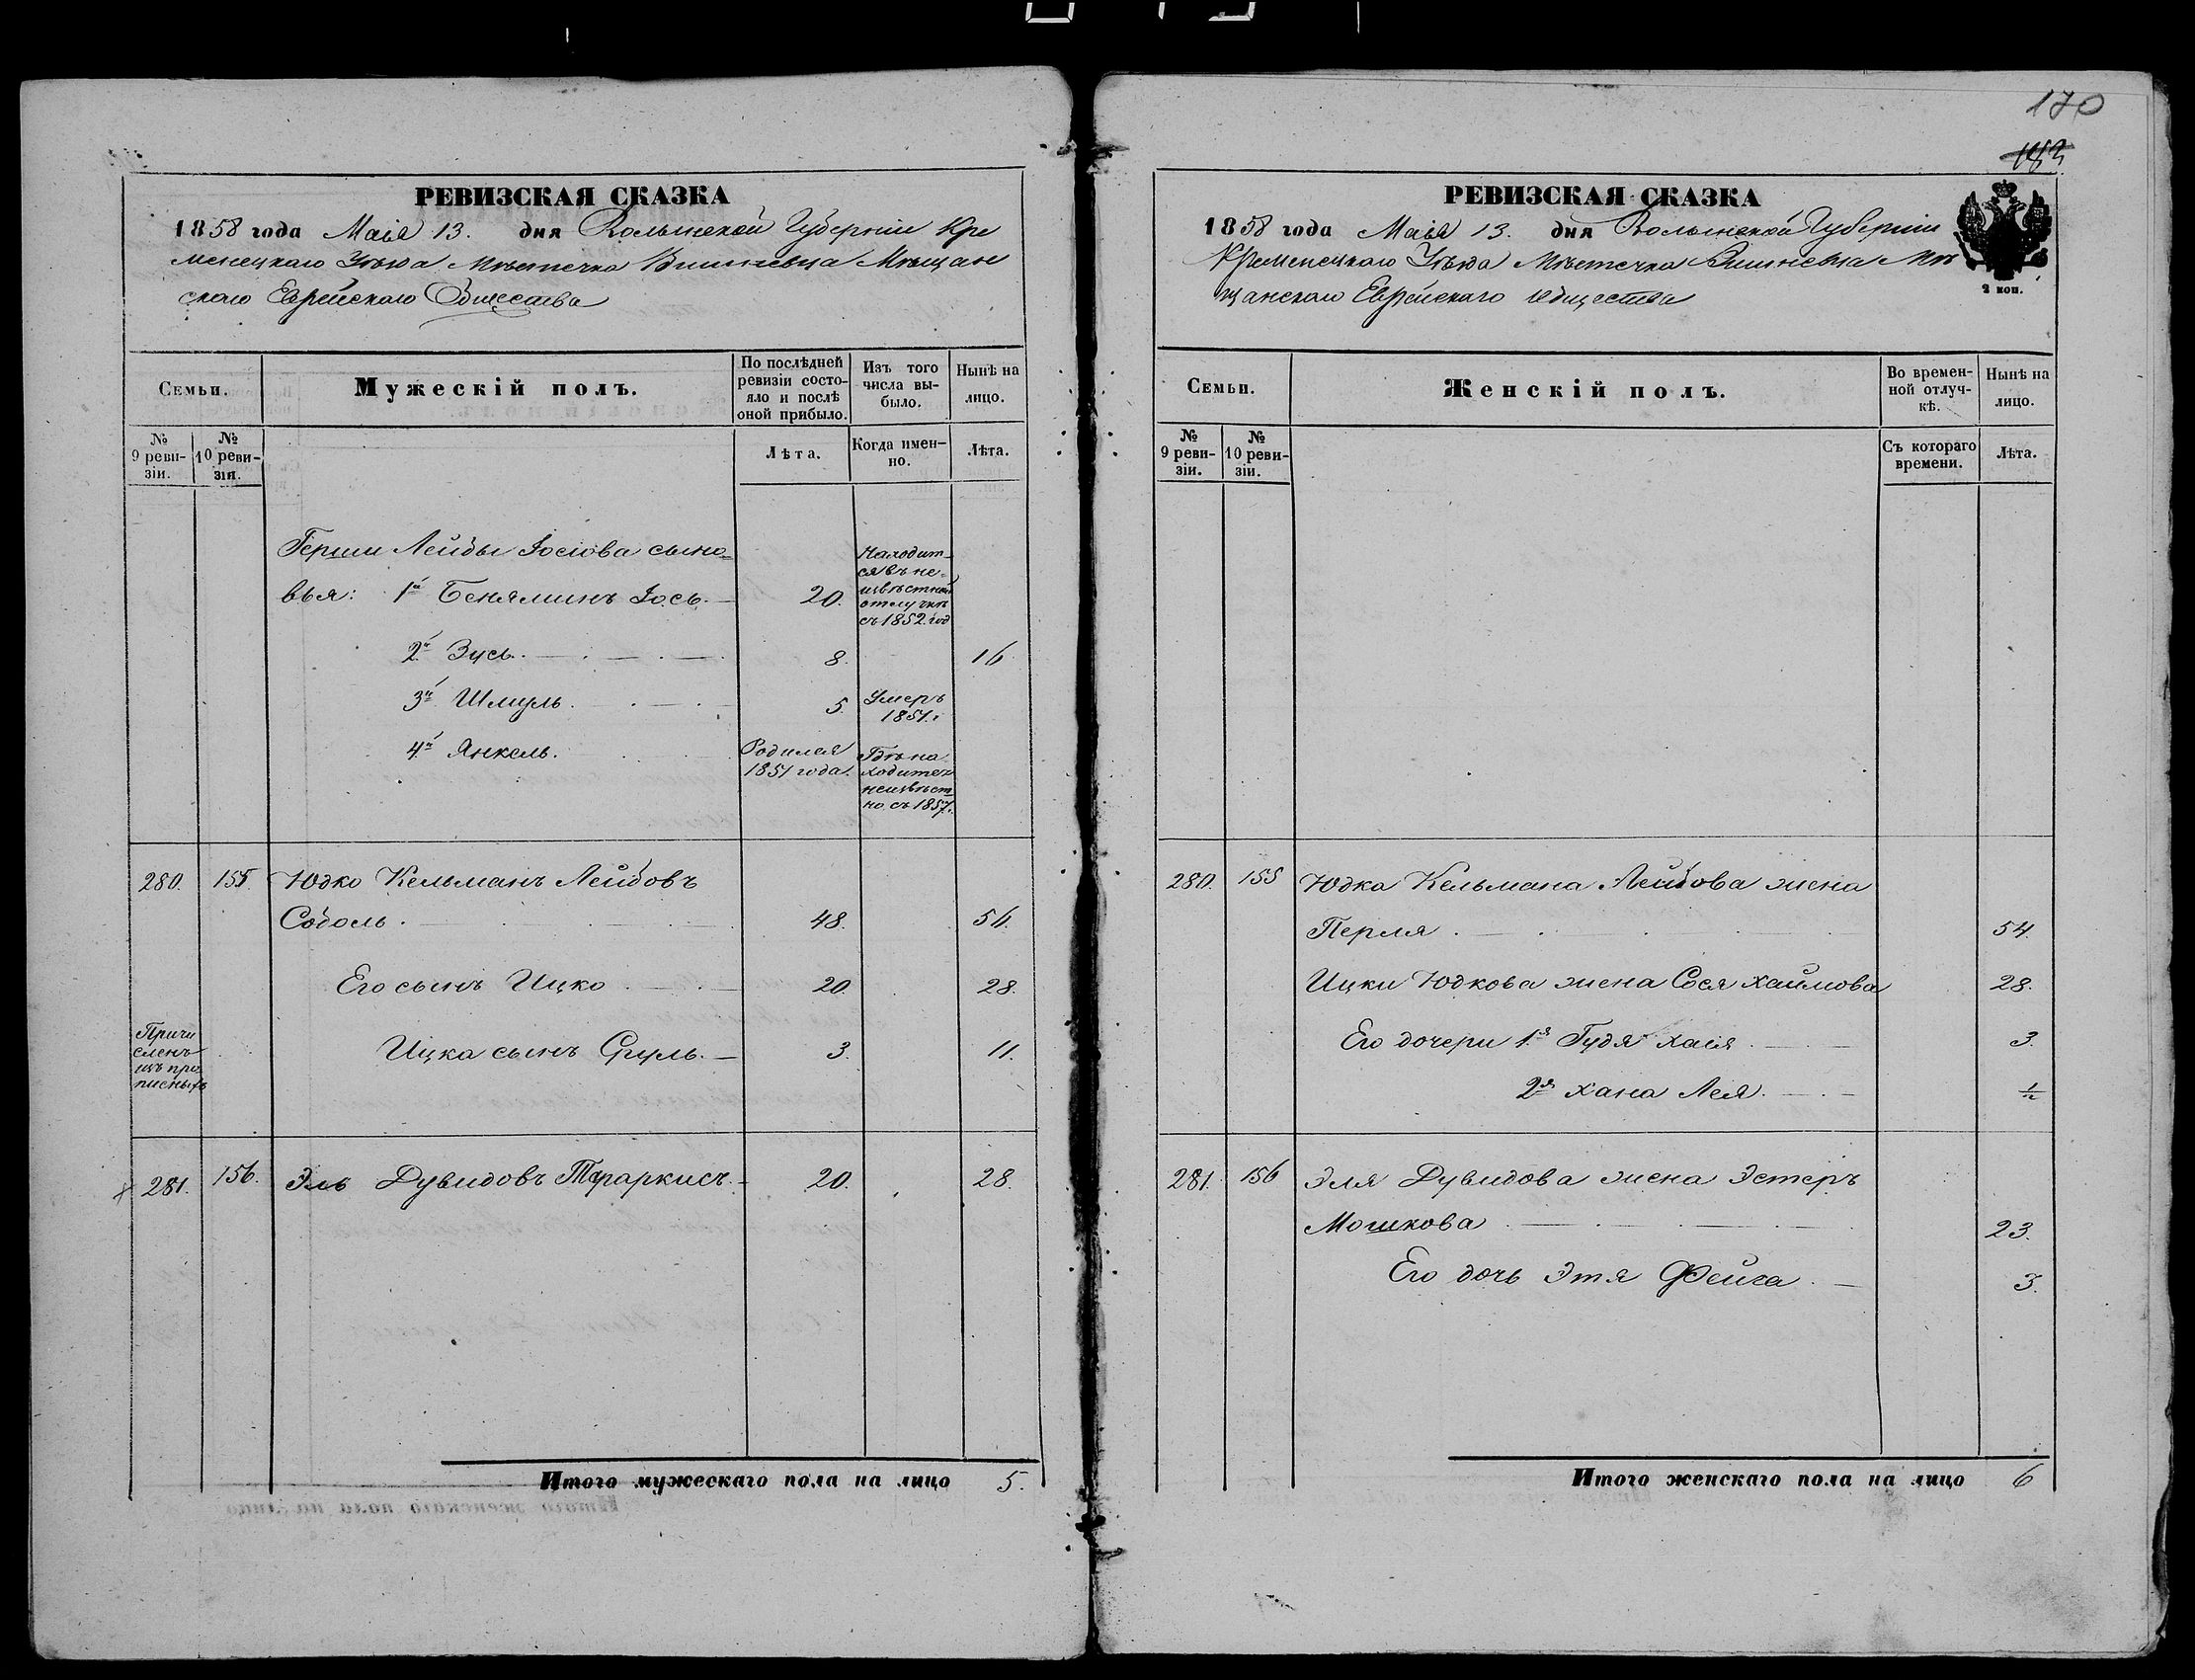 170
РЕВИЗСКАЯ СКАЗКА
1858 года Маія 13. дня Волынской Губерніи Кре
менецкаго Уѣзда Мѣстечка Вишневца Мѣщан
скаго Еврейскаго Общества
Семьи.
Мужескій полъ.
По послѣдней ревизіи состо-
яло и послѣ оной прибыло.
Изъ того числа вы-
было.
Нынѣ на лицо.
№ 9 реви-
зіи.
№ 10 реви-
зія.
Лѣта.
Когда имен-
но.
Лѣта.
Герши Лейбы Іосіова сыно-
вья: 1й Беняминъ Іось. 20. Находит-
ся въ не-
извѣстной
отлучкѣ
съ 1852 год
2й Зусь. 8. 16
3й Шмуль. 5. Умеръ
1851.
4й Янкель. Родился
1851 года. Гдѣ на
ходится
неизвѣст
но съ 1857.
280. 155. Юдко Кельманъ Лейбовъ
Соболь. 48. 56.
Его сынъ Ицко 20. 28.
Причи
сленъ
изъ про
писныхъ
Ицка сынъ Сруль. 3. 11.
281. 156. Эль Дувидовъ 20. 28.
Итого мужескаго пола на лицо 5.
РЕВИЗСКАЯ СКАЗКА
1858 года Маія 13. дня Волынской Губерніи
Кременецкаго Уѣзда Мѣстечка Вишневца Мѣ
щанскаго Еврейскаго Общества
2 коп.
Семьи.
Женскій полъ.
Во времен-
ной отлуч-
кѣ.
Нынѣ на лицо.
№ 9 реви-
зіи.
№ 10 реви-
зіи.
Съ котораго времени.
Лѣта.
280. 155 Юдка Кельмана Лейбова жена
Перля 54.
Ицки Юдкова жена Сося Хаймова 28.
Его дочери 1я Гудя Хася 3.
2я Хана Лея. 1/2
281. 156 Эля Дувидова жена Эстеръ
Мошкова 23.
Его дочь Этя Фейга 3.
Итого женскаго пола на лицо 6